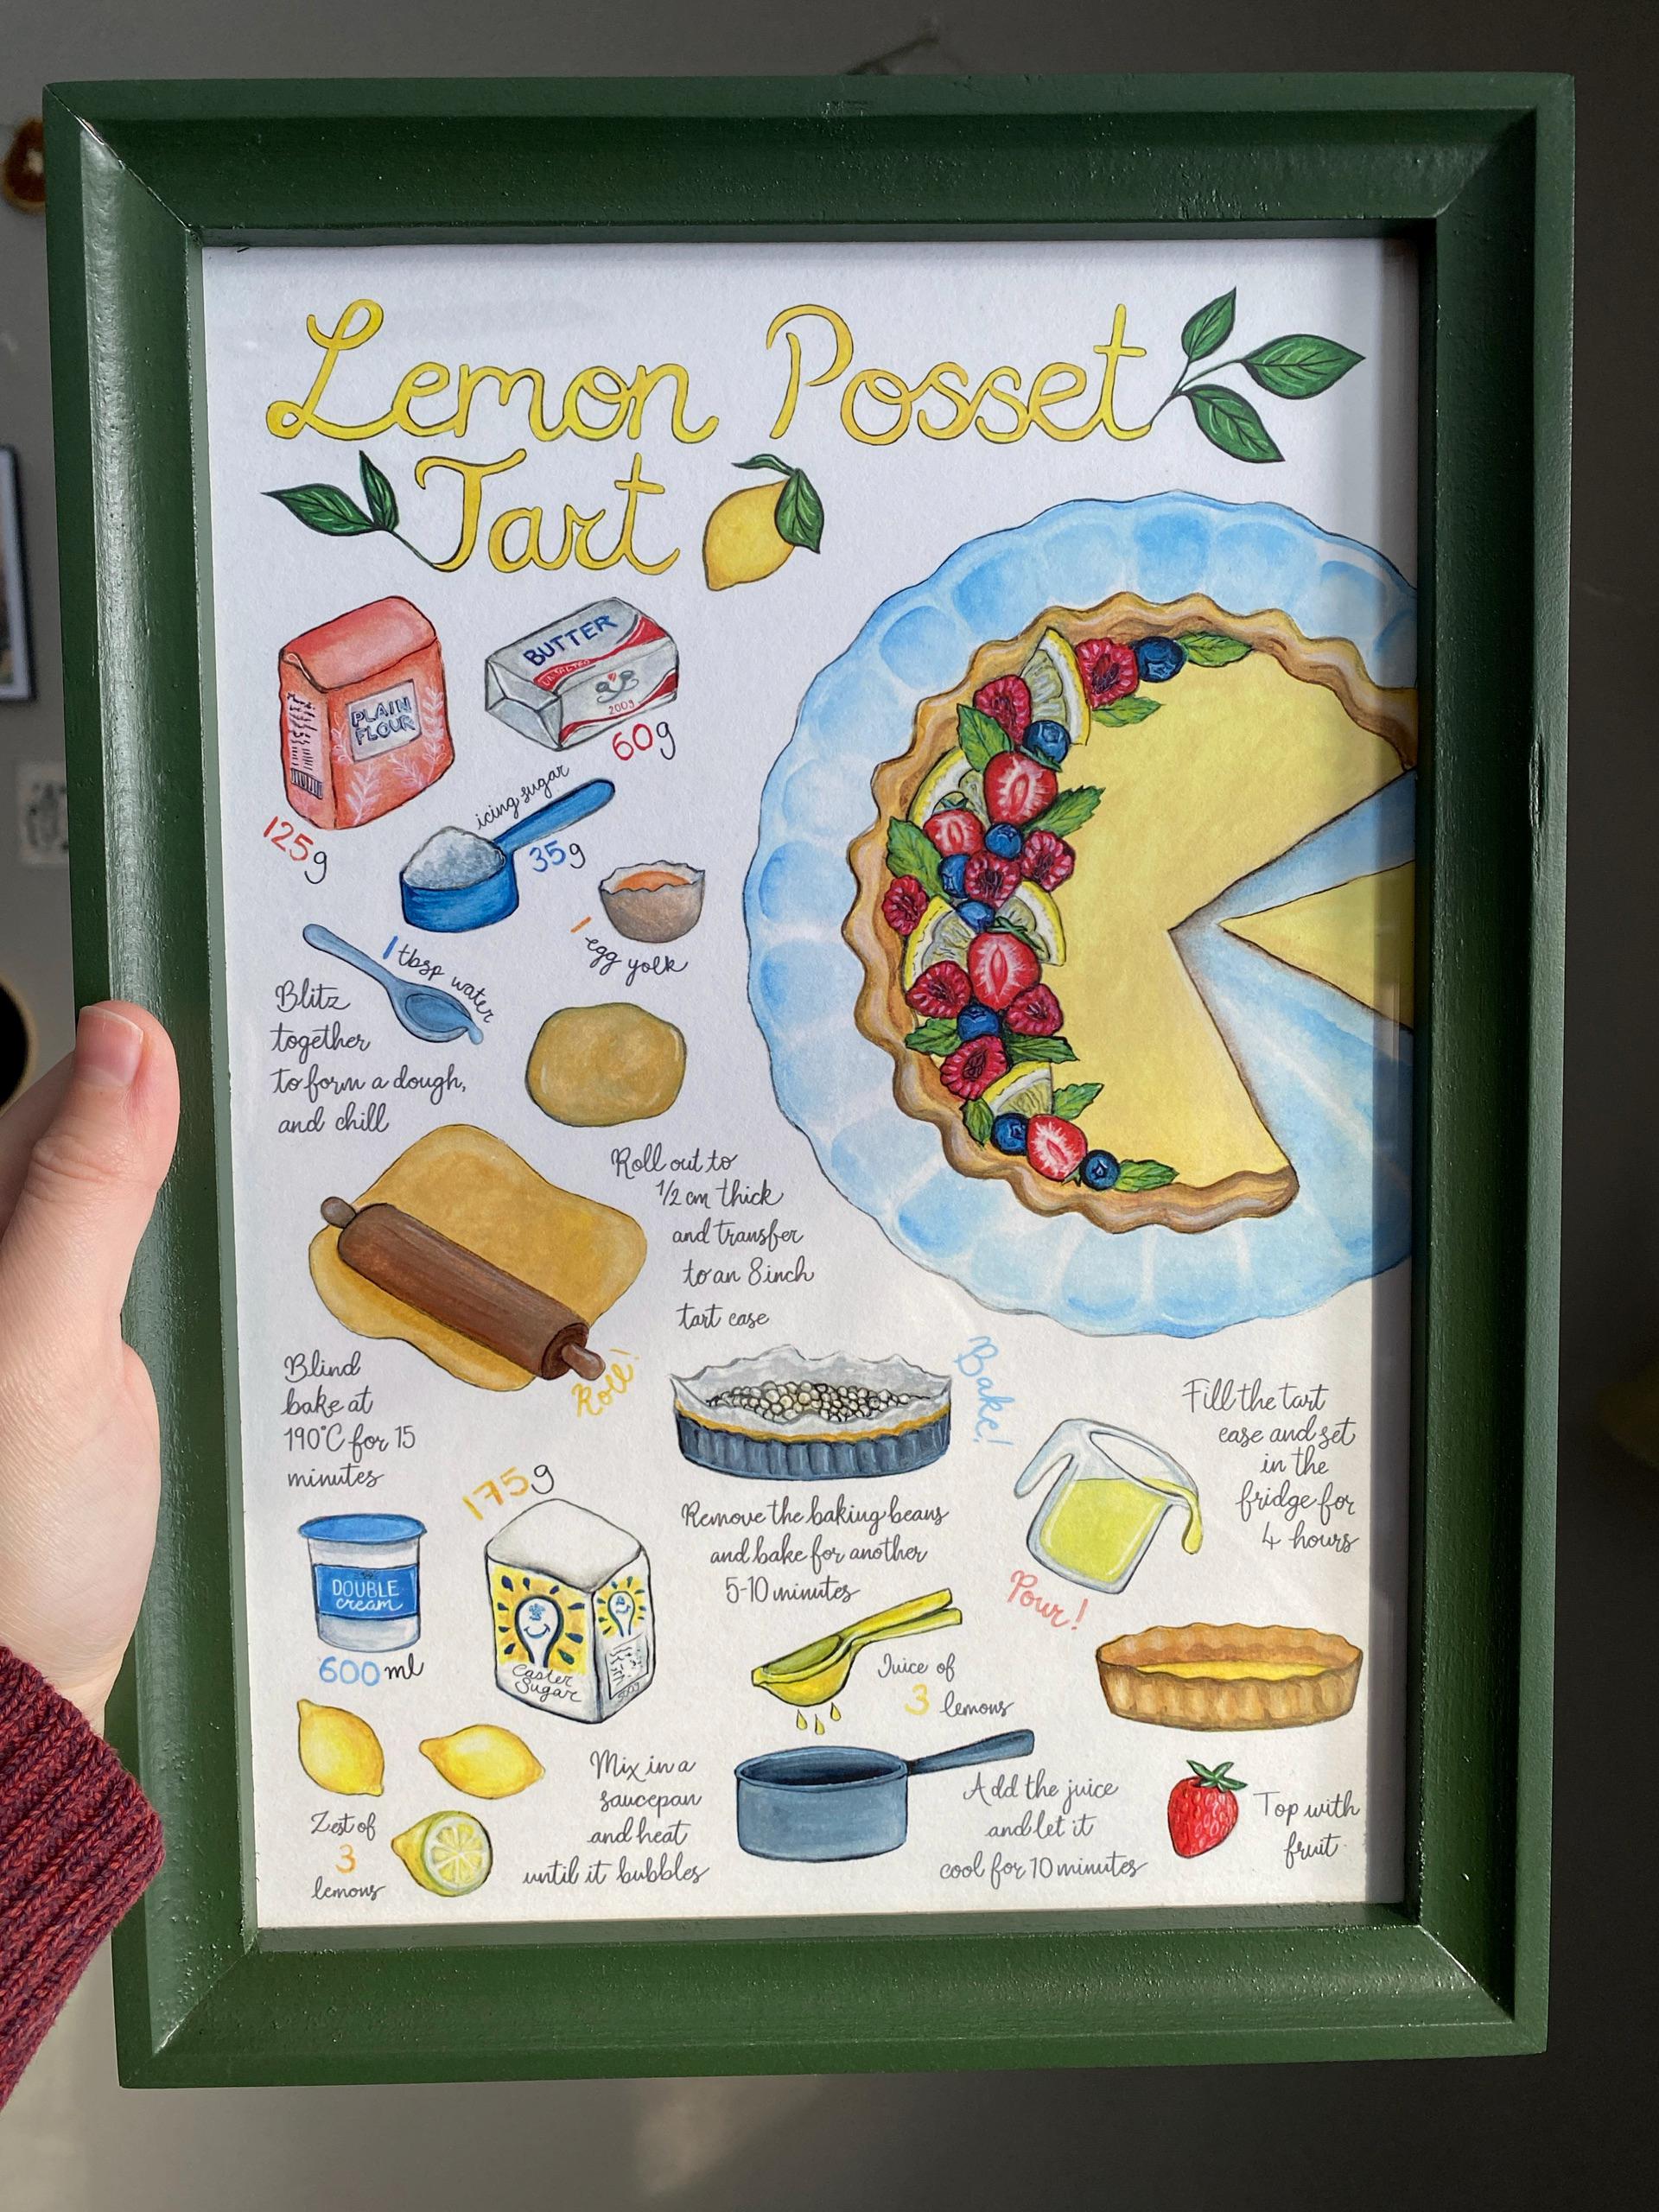 Lemon Posset
Tart
PLAIN
FLOUR
125g
BUTTER
UNSALTED
200g
60g
icing sugar
35g
1 egg yolk
1 tbsp water
Blitz
together
to form a dough,
and chill
Roll out to
1/2 cm thick
and transfer
to an 8inch
tart case
Roll!
Blind
bake at
190°C for 15
minutes
Bake!
Remove the baking beans
and bake for another
5-10 minutes
DOUBLE
cream
600ml
175g
Caster
Sugar
Zest of
3
lemons
Mix in a
saucepan
and heat
until it bubbles
Juice of
3 lemons
Add the juice
and let it
cool for 10 minutes
Pour!
Fill the tart
case and set
in the
fridge for
4 hours
Top with
fruit